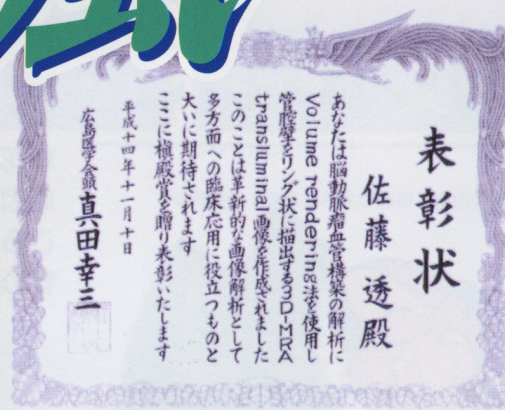 表彰状
佐藤 透殿
あなたは脳動脈瘤血管構築の解析に
Volume rendering法を使用し
管腔壁をリング状に描出する3D-MRA
transluminal画像を作成されました
このことは革新的な画像解析として
多方面への臨床応用に役立つものと
大いに期待されます
ここに槇殿賞を贈り表彰いたします
平成十四年十一月十日
広島医学会会頭 真田幸三